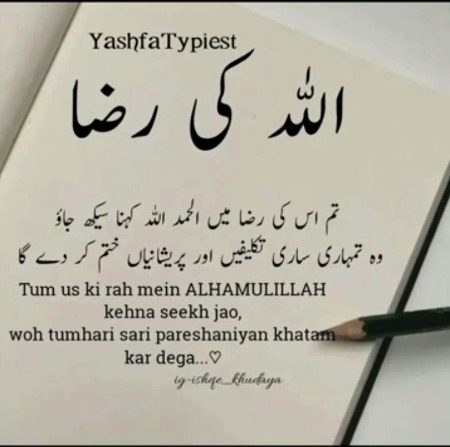 YashfaTypiest
اللہ کی رضا
تم اس کی رضا میں الحمد اللہ کہنا سیکھ جاؤ
وہ تمہاری ساری تکلیفیں اور پریشانیاں ختم کر دے گا
Tum us ki rah mein ALHAMULILLAH
kehna seekh jao,
woh tumhari sari pareshaniyan khatam
kar dega...♡
ig-ishqe_khudaya